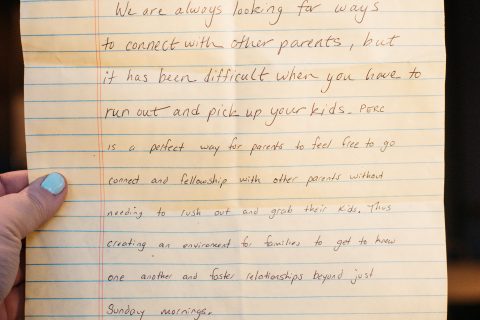 We are always looking for ways
to connect with other parents, but
it has been difficult when you have to
run out and pick up your kids. PERC
is a perfect way for parents to feel free to go
connect and fellowship with other parents without
needing to rush out and grab their kids. Thus
creating an environment for families to get to know
one another and foster relationships beyond just
Sunday mornings.